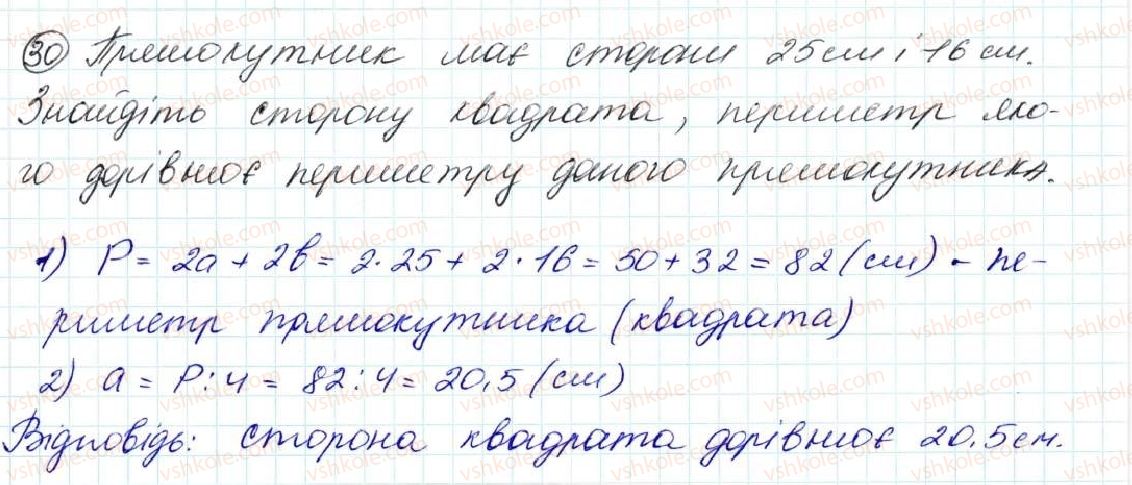 30 Прямокутник має сторони 25 см і 16 см.
Знайдіть сторону квадрата, периметр яко-
го дорівнює периметру даного прямокутника.
1) P = 2a + 2b = 2·25 + 2·16 = 50 + 32 = 82 (см) - пе-
риметр прямокутника (квадрата)
2) a = P : 4 = 82 : 4 = 20,5 (см)
Відповідь: сторона квадрата дорівнює 20,5 см.
vshkole.com